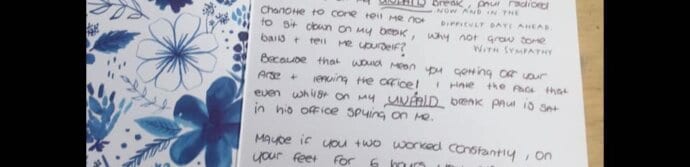 UNPAID break, Paul radioed
NOW AND IN THE
Charlotte to come tell me not
DIFFICULT DAYS AHEAD
to sit down on my break, why not grow some
balls + tell me yourself?
WITH SYMPATHY
Because that would mean you getting off your
Arse + leaving the office! I hate the fact that
even whilst on my UNPAID break Paul is sat
in his office spying on me.
Maybe if you two worked constantly, on
your feet for 6 hours